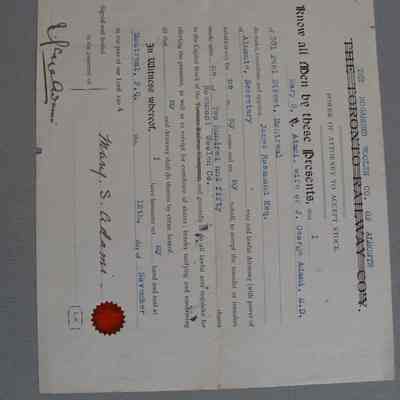 THE ROSAMOND WOOLEN CO. OF ALMONTE
THE TORONTO RAILWAY COY.
POWER OF ATTORNEY TO ACCEPT STOCK
Know all Men by these Presents, that I
Mary S. C. Adami, wife of J. George Adami, M.D.
of 331 Peel Street, Montreal
do make, constitute and appoint James Rosamond Esq.
of Almonte, Secretary true and lawful Attorney (with power of
substitution) for me in my name and on my behalf, to accept the transfer or transfers
made unto me of Two hundred and fifty shares
in the Capital Stock of the
Rosamond Woolen Co. and generally to do all lawful acts requisite for
effecting the premises, as well as in receipt for certificate of shares ; hereby ratifying and confirming
all that my said Attorney shall do therein by virtue hereof.
In Witness whereof, I have hereunto set my hand and seal at
Montreal, P.Q. this 18th day of November
in the year of our Lord 190
Signed and Sealed
in the presence of
Mary. S. Adami
L.S.